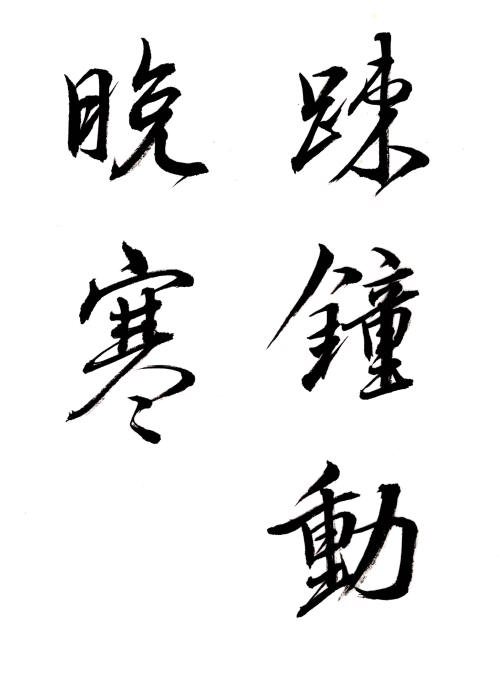 踈鐘動
晩寒